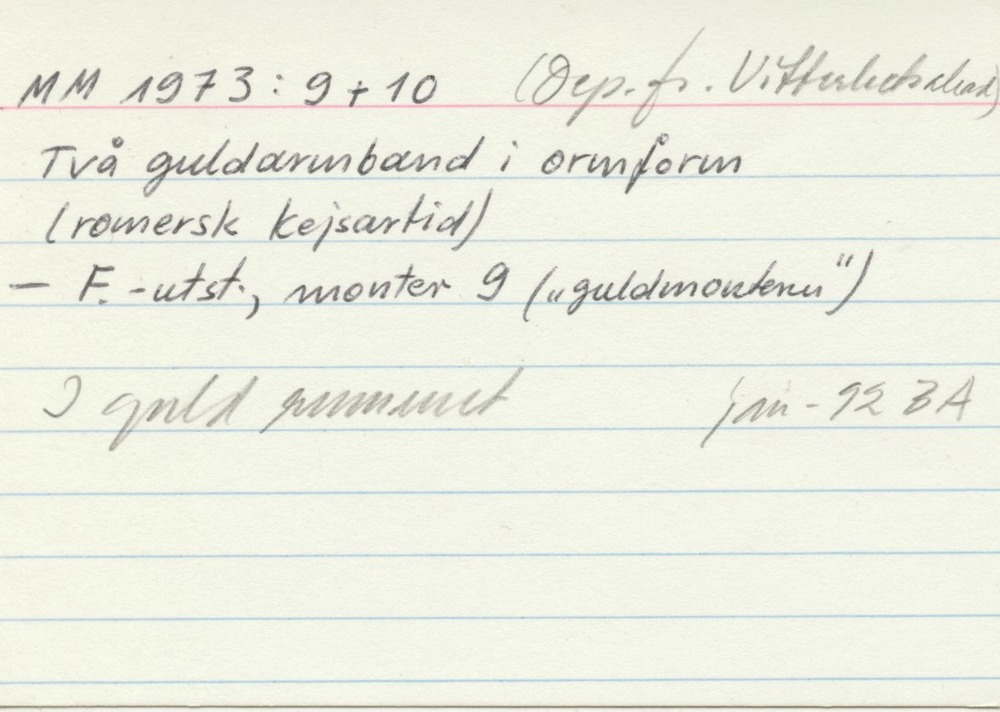 MM 1973: 9 + 10 (Dep. fr. Vitterhetsakad)
Två guldarmband i ormform
(romersk kejsartid)
— F.-utst., monter 9 („guldmontern“)
I guldrummet jan-92 BA